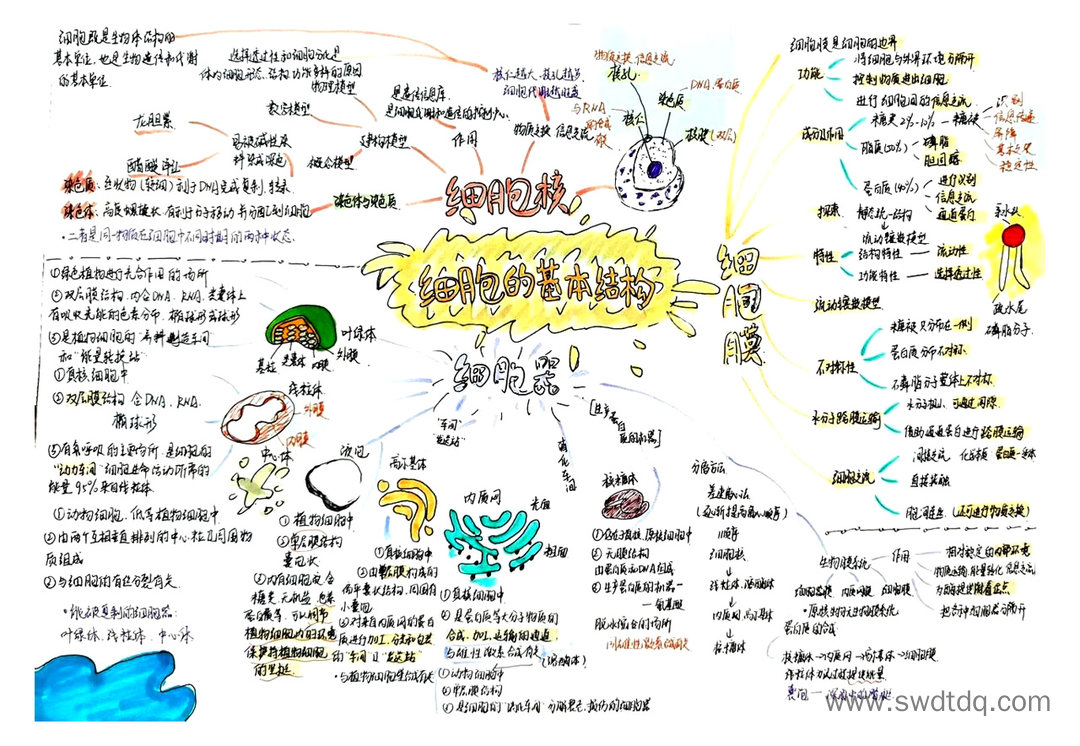 细胞的基本结构
细胞核
细胞既是生物体结构的
基本单位，也是生物遗传和代谢
的基本单位
选择透过性和细胞分化是
体内细胞形态、结构、功能多样的原因
物理模型
数学模型
概念模型
建构模型
龙胆紫
醋酸洋红
易被碱性染
料染成深色
是遗传信息库
是细胞代谢和遗传的控制中心
作用
核仁越大、核孔越多
细胞代谢越旺盛
物质交换 信息交流
物质交换、信息交流
核孔
染色质
DNA、蛋白质
核仁
核膜(双层)
染色体与染色质
染色质：丝状物
染色体：高度螺旋状
·二者是同一物质在细胞中不同时期的两种状态。
细胞膜
细胞膜是细胞的边界
功能
将细胞与外界环境分隔开
控制物质进出细胞
进行细胞间的信息交流
成分及作用
糖类 2%-10% — 糖被
识别
信息传递
保护
脂质(50%)
磷脂
胆固醇
蛋白质(40%)
进行识别
信息交流
通道蛋白
探索
流动镶嵌模型
特性
结构特性 — 流动性
功能特性 — 选择透过性
亲水头
疏水尾
磷脂分子
流动镶嵌模型
不对称性
糖被只分布在一侧
蛋白质分布不对称
磷脂分子整体上不对称
水分子跨膜运输
水分子小，可通过间隙
借助通道蛋白进行跨膜运输
细胞交流
直接接触
胞间连丝 (还可进行物质交换)
细胞器
①绿色植物进行光合作用的场所
②双层膜结构，内含DNA、RNA，类囊体上
有吸收光能的色素分布，椭球形或球形
③是植物细胞的“养料制造车间
和“能量转换站”
叶绿体
基粒
类囊体
内膜
外膜
①真核细胞中
②双层膜结构 含DNA、RNA，
椭球形
③有氧呼吸的主要场所，是细胞的
“动力车间”细胞生命活动所需的
能量95%来自线粒体
线粒体
外膜
内膜
中心体
①动物细胞、低等植物细胞中
②由两个互相垂直排列的中心粒及周围物
质组成
③与细胞的有丝分裂有关
叶绿体、线粒体、中心体
液泡
①植物细胞中
②单层膜结构
囊泡状
③内有细胞液 含
糖类、无机盐、色素
蛋白质等，可以调节
植物细胞内的环境
保护持植物细胞
的坚挺
“车间”
“发送站”
高尔基体
①真核细胞中
②由单层膜构成的
扁平囊状结构，周围有
小囊泡
③对来自内质网的蛋白
质进行加工、分类和包装
的“车间”及“发送站”
·与植物细胞壁合成有关
内质网
光面
粗面
①真核细胞中
②是蛋白质等大分子物质的
合成、加工、运输的通道
与雄性激素合成有关
消化车间
(溶酶体)
①动物细胞中
②单层膜结构
[生产蛋白
质的机器]
核糖体
①包括真核、原核细胞中
②无膜结构
由蛋白质和RNA组成
③生产蛋白质的机器—
—氨基酸
脱水缩合的场所
分离方法
差速离心法
(逐渐提高离心速率)
↓顺序
细胞核
↓
线粒体、溶酶体
↓
内质网、高尔基体
↓
核糖体
生物膜系统
作用
细胞器膜 内质网膜 细胞膜
相对稳定的内部环境
物质运输、能量转化、信息交流
为酶提供附着位点
把各种细胞器分隔开
·原核细胞无生物膜系统
蛋白质的合成
核糖体→内质网→高尔基体→细胞膜
线粒体为此过程提供能量
www.swdtdq.com